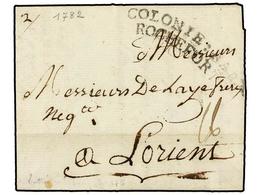 1782
COLONIE PAR
ROCHEFOR
Messieurs
Messieurs De Laye freres
Neg.ts
a Lorient